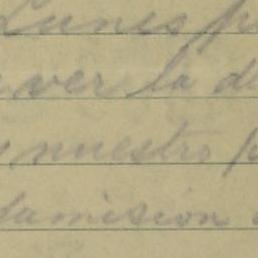 Lunes p
ver la d
nuestro p
damision